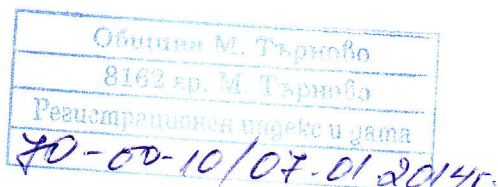 Община М. Търново
8162 гр. М. Търново
Регистрационен индекс и дата
70-00-10/07.01.2014г.